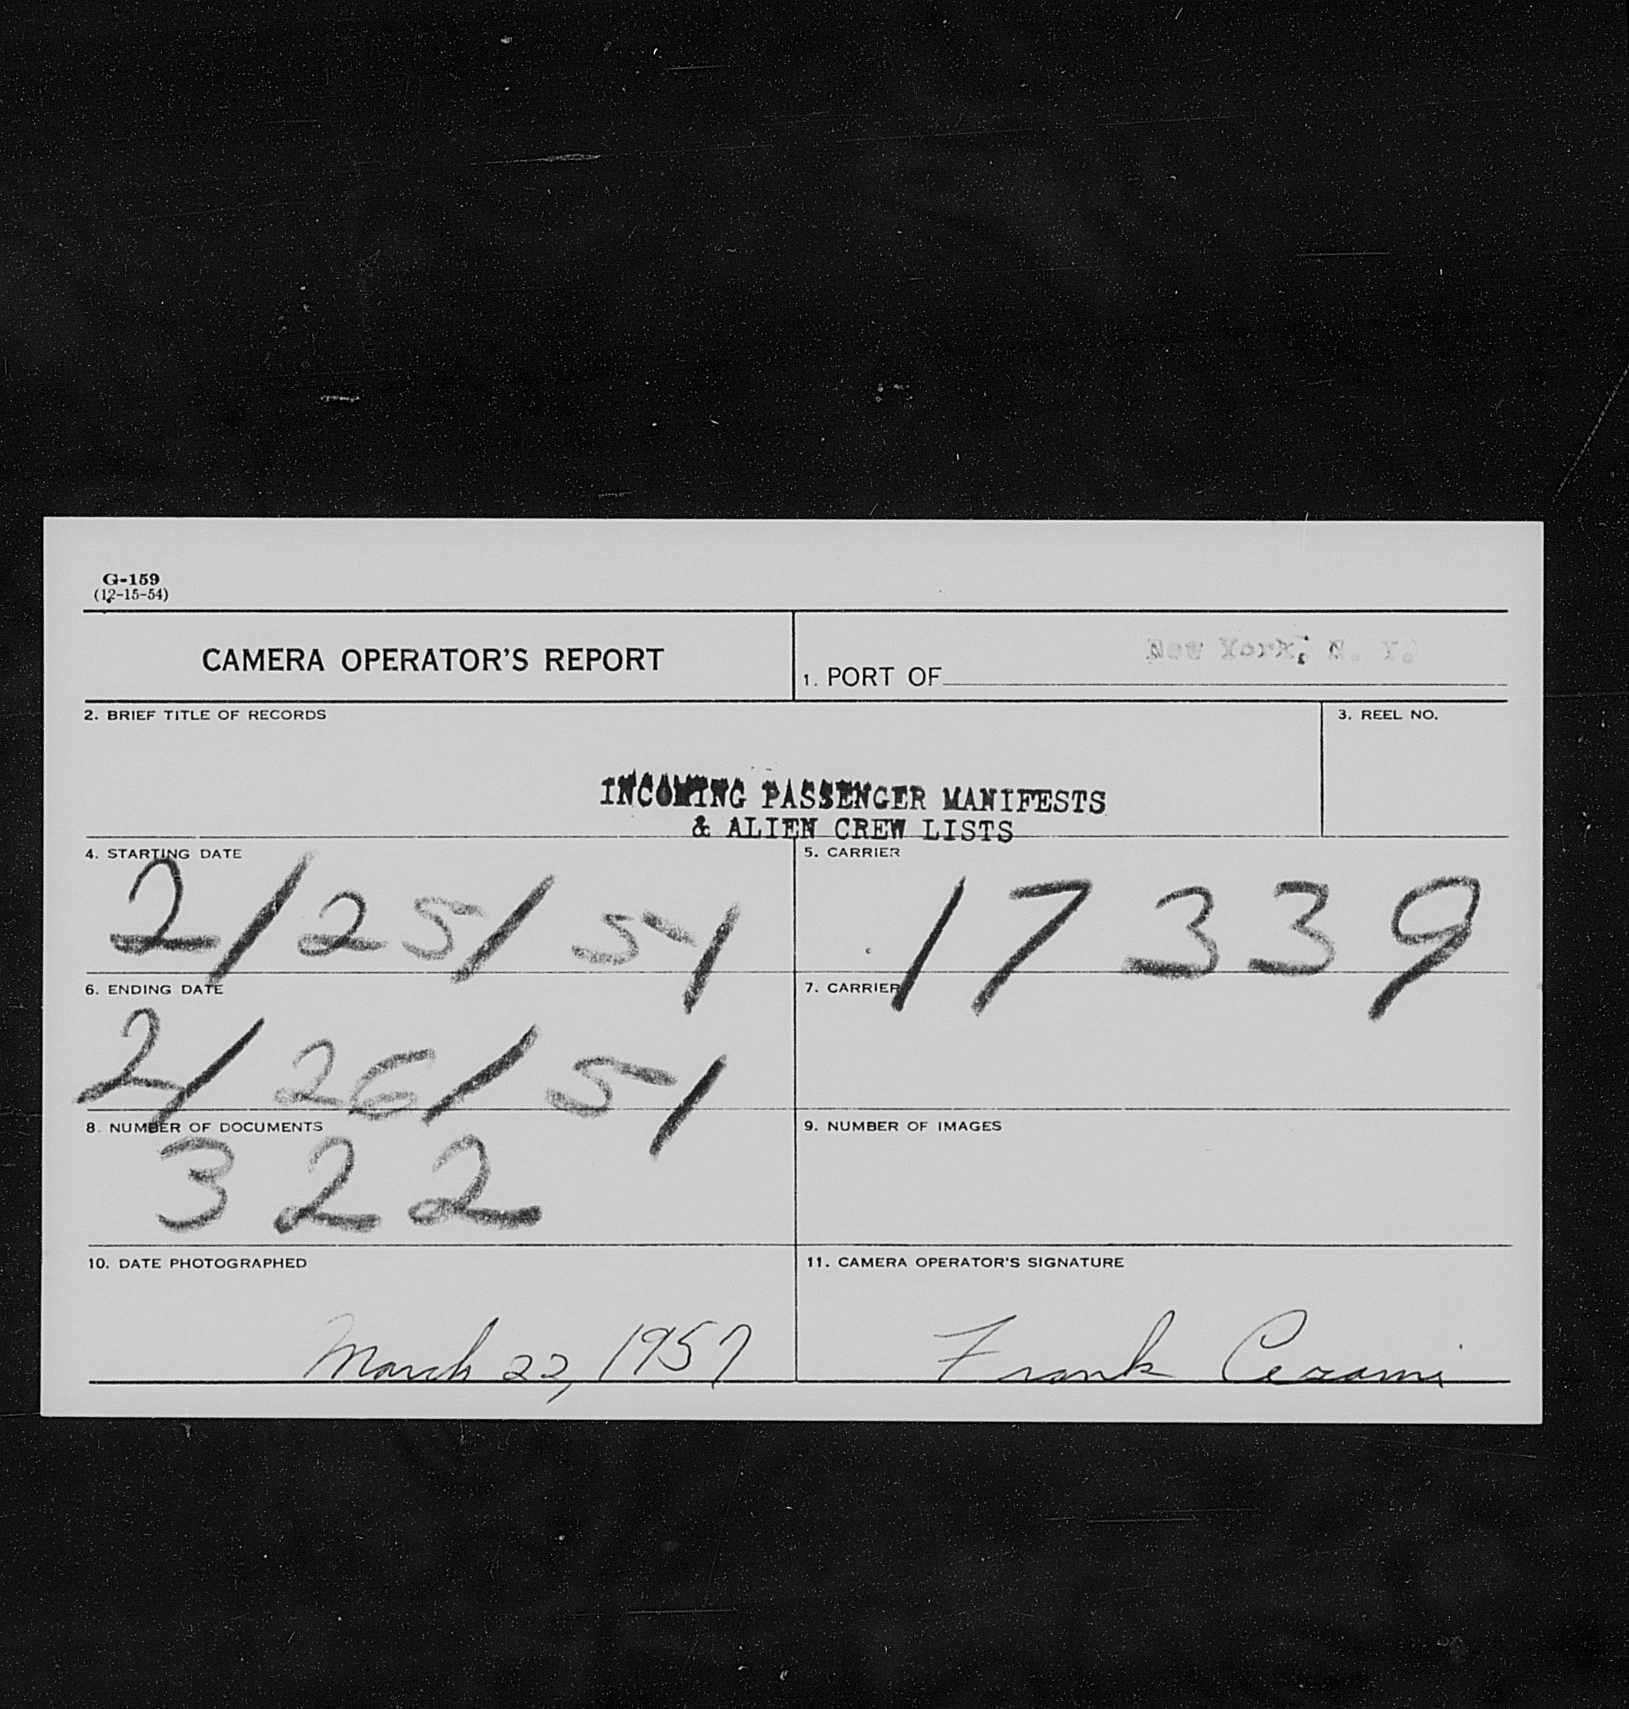 G-159
(12-15-54)
CAMERA OPERATOR'S REPORT
1. PORT OF New York, N. Y.
2. BRIEF TITLE OF RECORDS
3. REEL NO.
INCOMING PASSENGER MANIFESTS
& ALIEN CREW LISTS
4. STARTING DATE
5. CARRIER
2/25/51
17339
6. ENDING DATE
7. CARRIER
2/26/51
8. NUMBER OF DOCUMENTS
9. NUMBER OF IMAGES
322
10. DATE PHOTOGRAPHED
11. CAMERA OPERATOR'S SIGNATURE
March 22, 1957
Frank Cerami